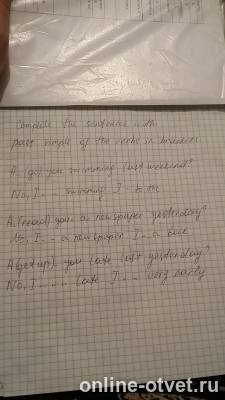 Complete the sentences with
past simple of the verbs in brackets
A. (go) you swimming last weekend?
No, I... swimming I... to the
A. (read) you a newspaper yesterday?
No, I... a newspaper I... a book
A (get up) you late last yesterday?
No, I... late I... very early
online-otvet.ru